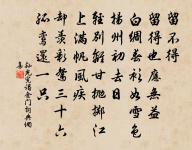 留不得
留得也應無益
白紵春衫如雪色
揚州初去日
輕別離甘拋擲江
上滿帆風疾
却羨彩鴛三十六
孤鸞還一只
孫光憲謁金門詞典網